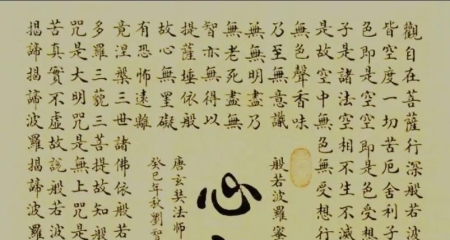 觀自在菩薩行深般若波
皆空度一切苦厄舍利子
色即是空空即是色受想
子是諸法空相不生不滅
是故空中無色無受想行
無色聲香味
乃至無意識
無無明盡乃
無老死盡無
智亦無得以
提薩埵依般
故心無罣礙
有恐怖遠離
般若波羅蜜
心
唐玄奘法師
癸巳年秋劉智
竟涅槃三世諸佛依般若
多羅三藐三菩提故知般
咒是大明咒是無上咒是
苦真實不虛故說般若波
揭諦揭諦波羅揭諦波羅